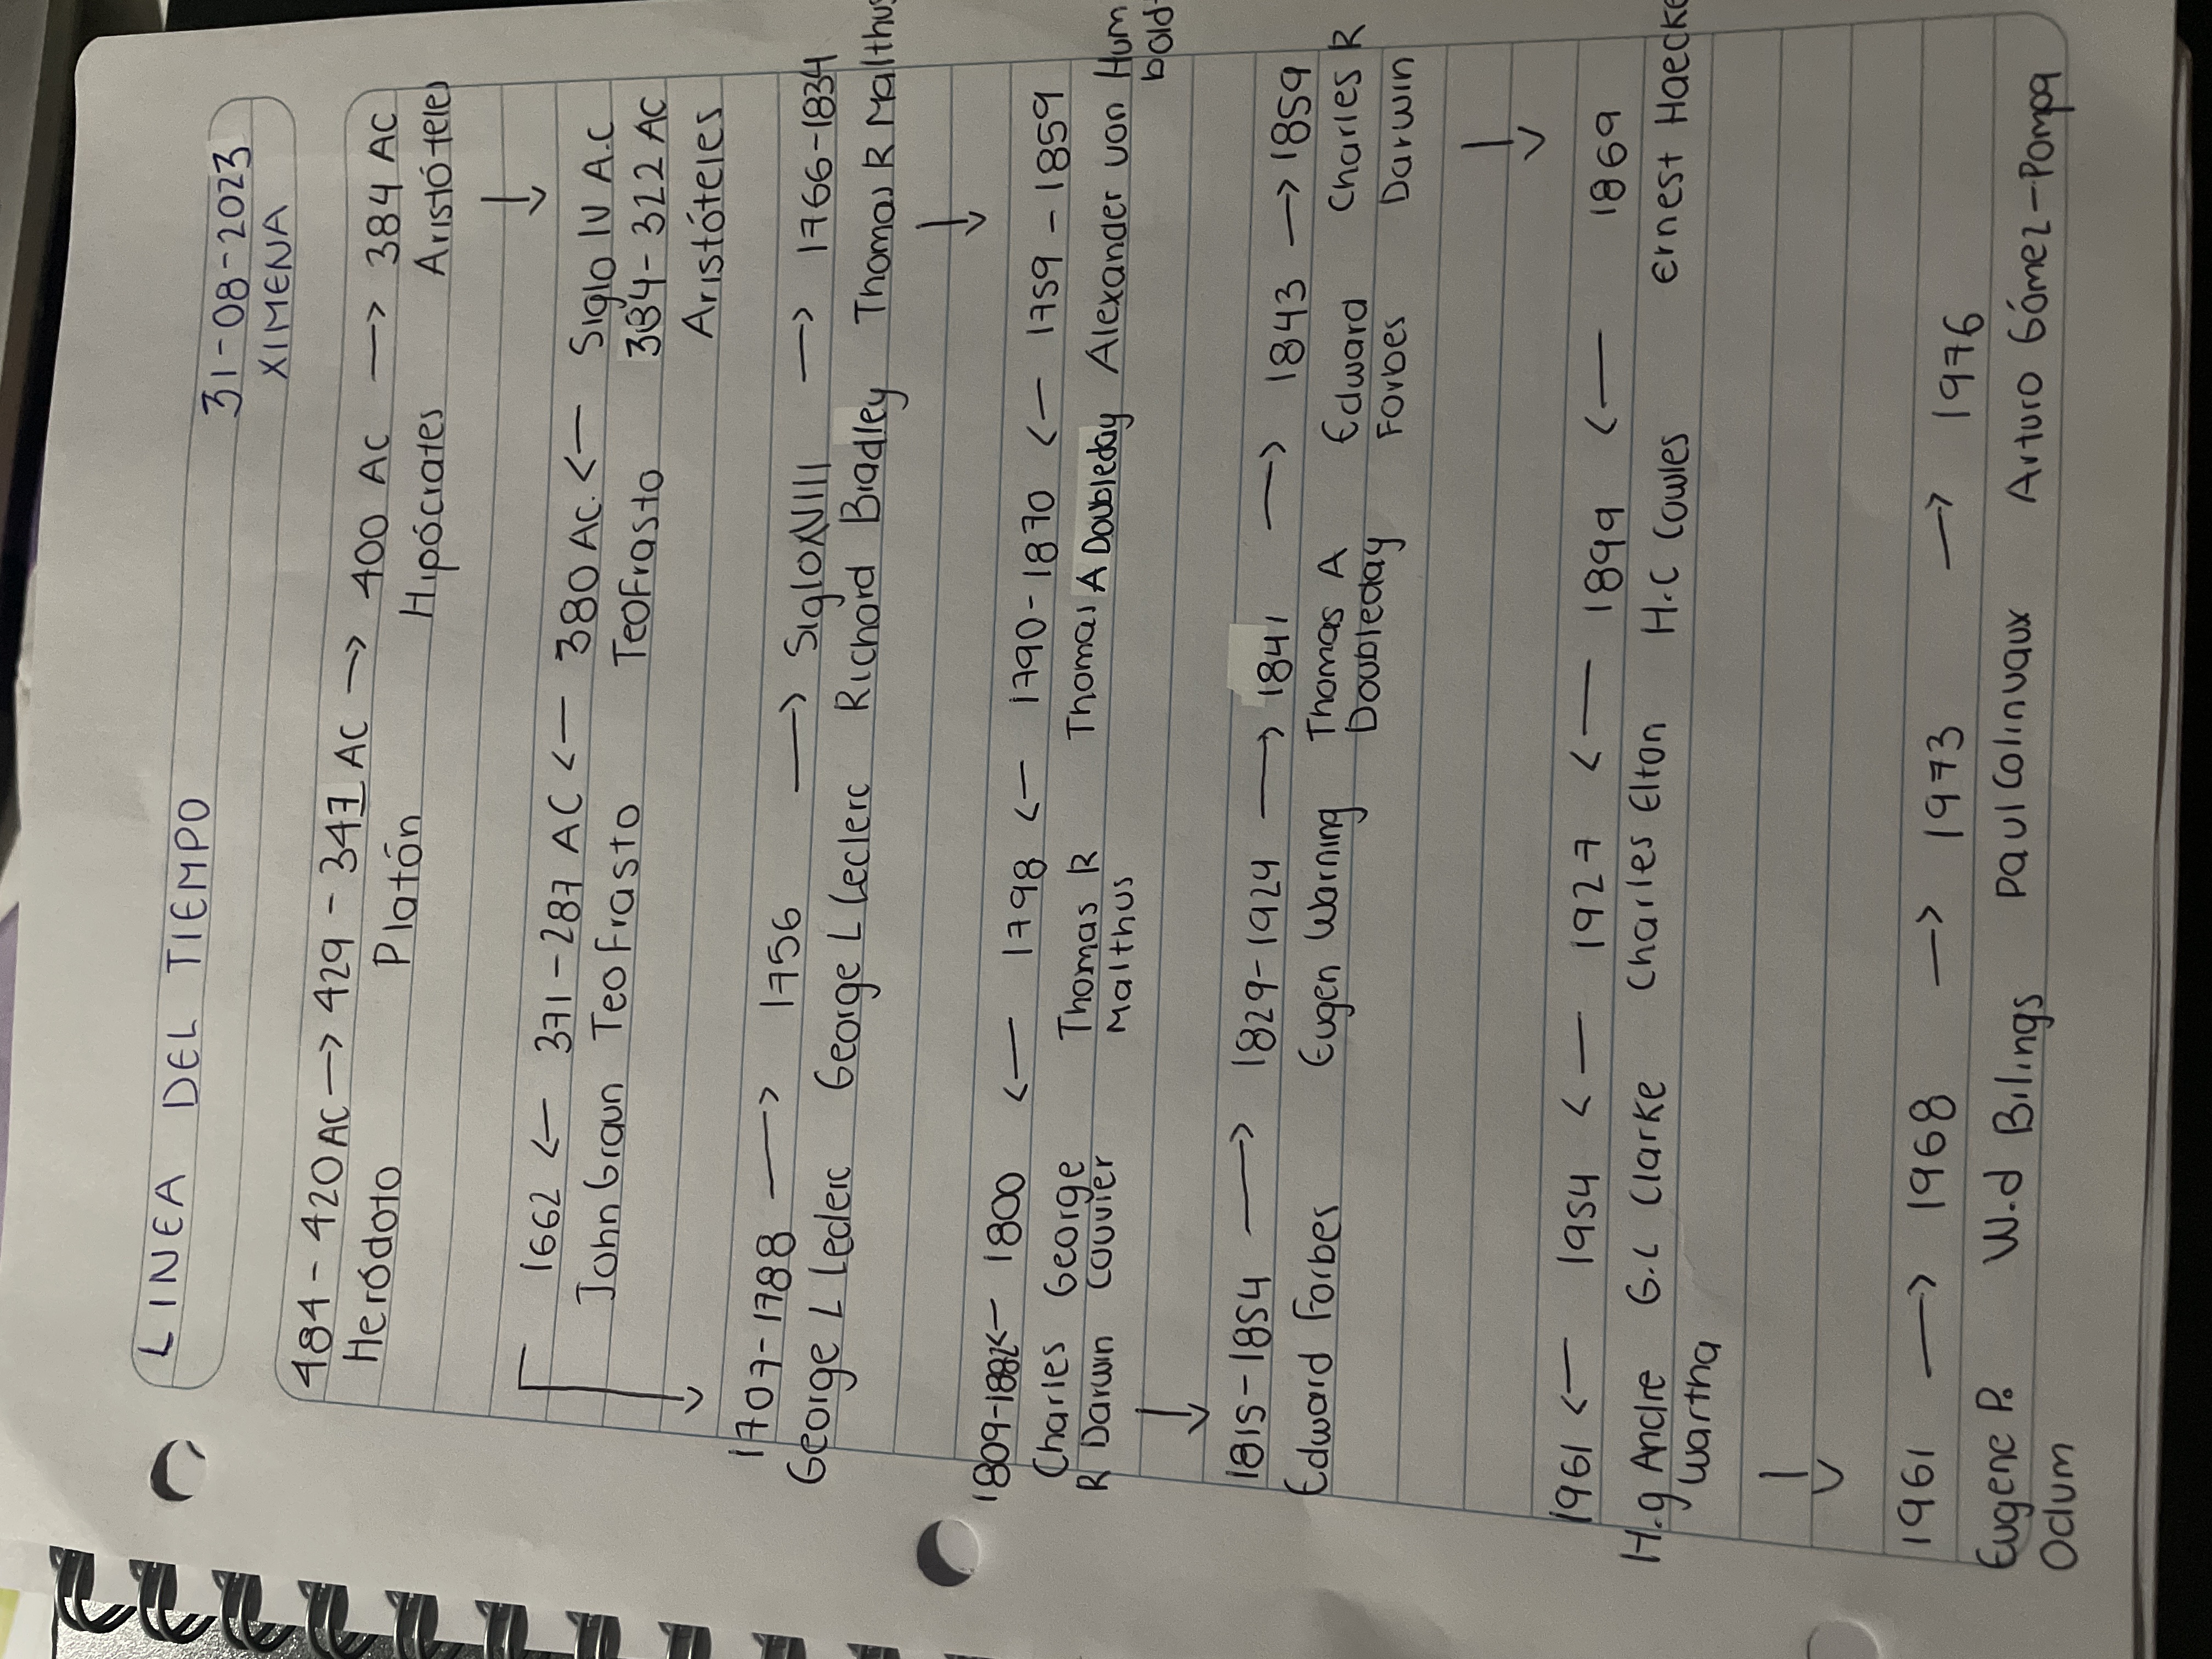 LINEA DEL TIEMPO 31-08-2023
XIMENA
484-420AC → 429-347 AC → 400 AC → 384 AC
Heródoto Platón Hipócrates Aristóteles
↓
1662 ← 371-287 AC ← 380 AC. ← Siglo IV A.C
John Graun Teofrasto Teofrasto 384-322 AC
Aristóteles
1707-1788 → 1756 → Siglo XVIII → 1766-1834
George L Leclerc George L Leclerc Richard Bradley Thomas R Malthus
↓
1809-1882 ← 1800 ← 1798 ← 1790-1870 ← 1759-1859
Charles George Thomas R Thomas A Doubleday Alexander von Hum
R Darwin Couvier Malthus bold
↓
1815-1854 → 1829-1924 → 1841 → 1843 → 1859
Edward Forbes Eugen Warning Thomas A Edward Charles R
Doubleday Forbes Darwin
↓
1961 ← 1954 ← 1927 ← 1899 ← 1869
H.g Andre G.L Clarke Charles Elton H.C Cowles Ernest Haecke
Wartha
↓
1961 → 1968 → 1973 → 1976
Eugene P. W.d Bilings Paul Colinvaux Arturo Gómez-Pompa
Odum